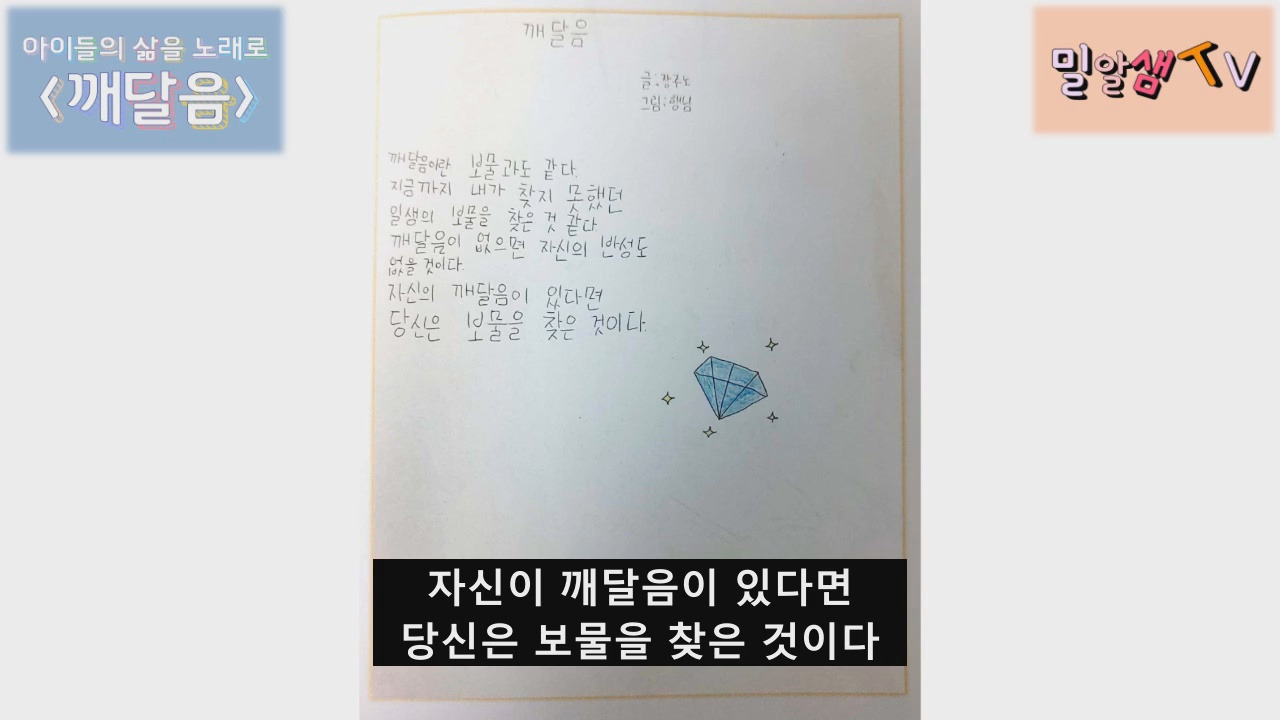 아이들의 삶을 노래로
<깨달음>
밀알샘TV
깨달음
글:강주노
그림:행님
깨달음이란 보물과도 같다.
지금까지 내가 찾지 못했던
일생의 보물을 찾은 것 같다
깨달음이 없으면 자신의 반성도
없을 것이다.
자신의 깨달음이 있다면
당신은 보물을 찾은 것이다.
자신이 깨달음이 있다면
당신은 보물을 찾은 것이다